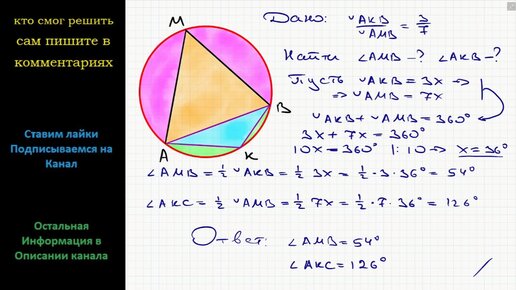 кто смог решить
сам пишите в
комментариях
Ставим лайки
Подписываемся на
Канал
Остальная
Информация в
Описании канала
M
B
A
K
Дано: ◡AKB / ◡AMB = 3/7
Найти ∠AMB-? ∠AKB-?
Пусть ◡AKB = 3x ⇒
⇒ ◡AMB = 7x
◡AKB + ◡AMB = 360°
3x + 7x = 360°
10x = 360° |:10 ⇒ x = 36°
∠AMB = 1/2 ◡AKB = 1/2 3x = 1/2 · 3 · 36° = 54°
∠AKC = 1/2 ◡AMB = 1/2 7x = 1/2 · 7 · 36° = 126°
Ответ: ∠AMB = 54°
∠AKC = 126°